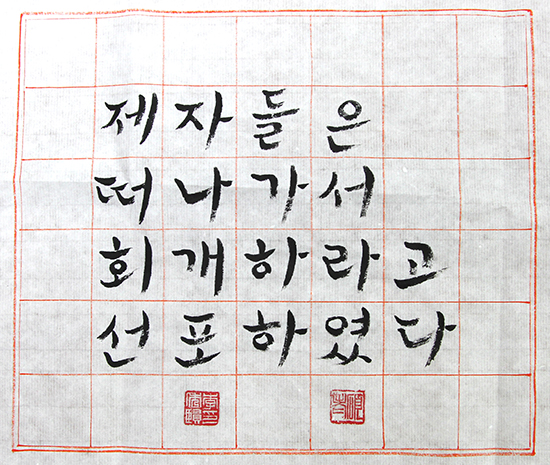 제자들은
떠나가서
회개하라고
선포하였다